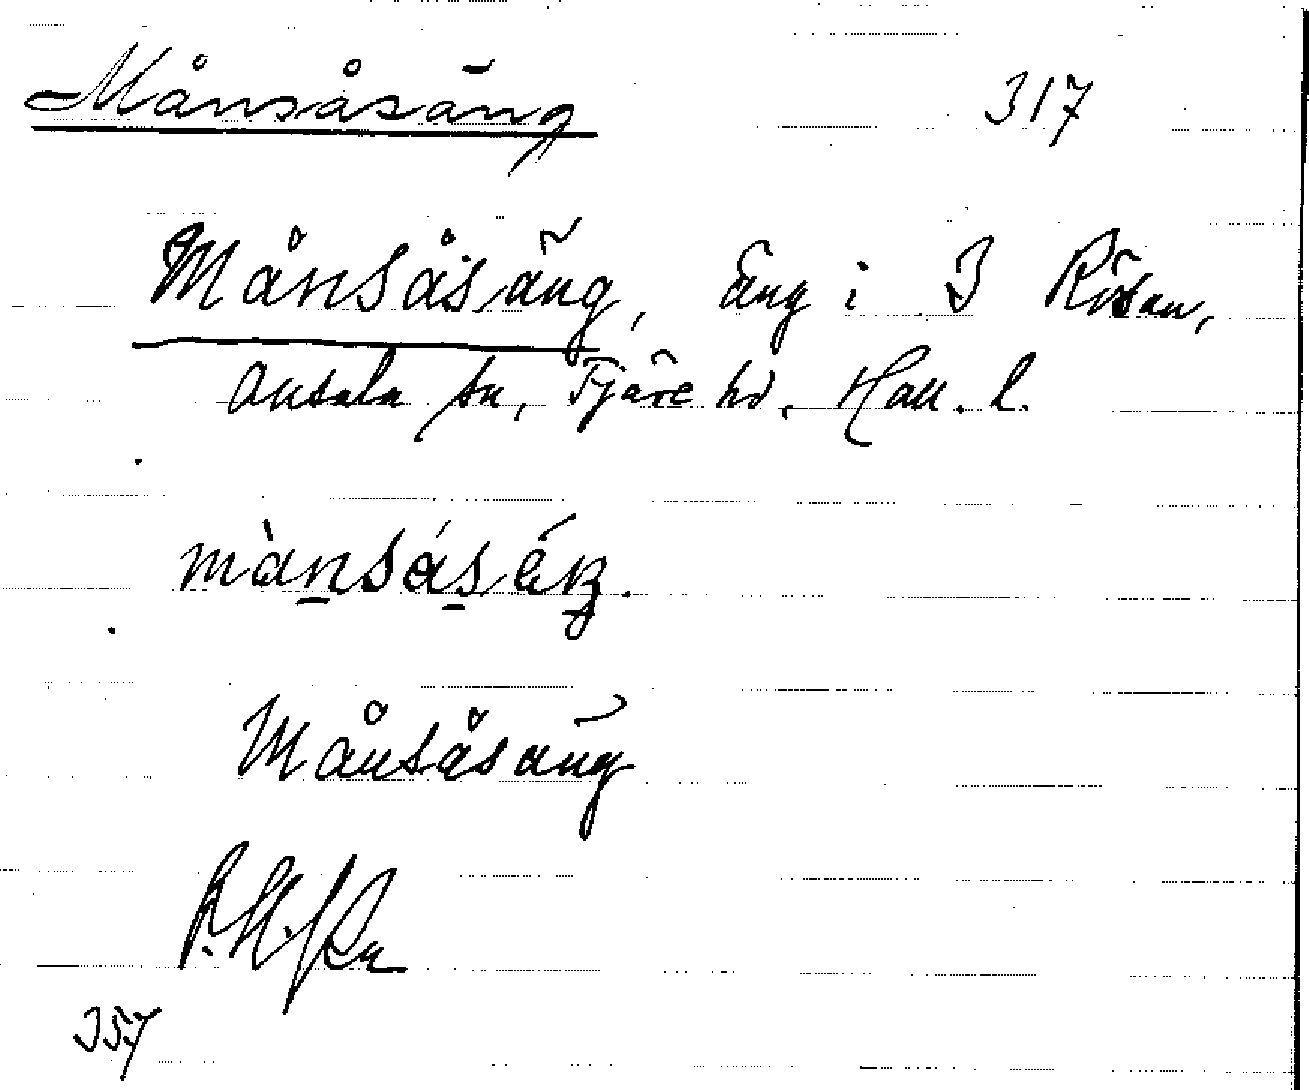 Månsåsäng 317
Månsåsäng, äng i I Rösan,
Onsala sn, Fjäre hd, Hall. l.
mànsásáŋ.
Månsåsäng
357